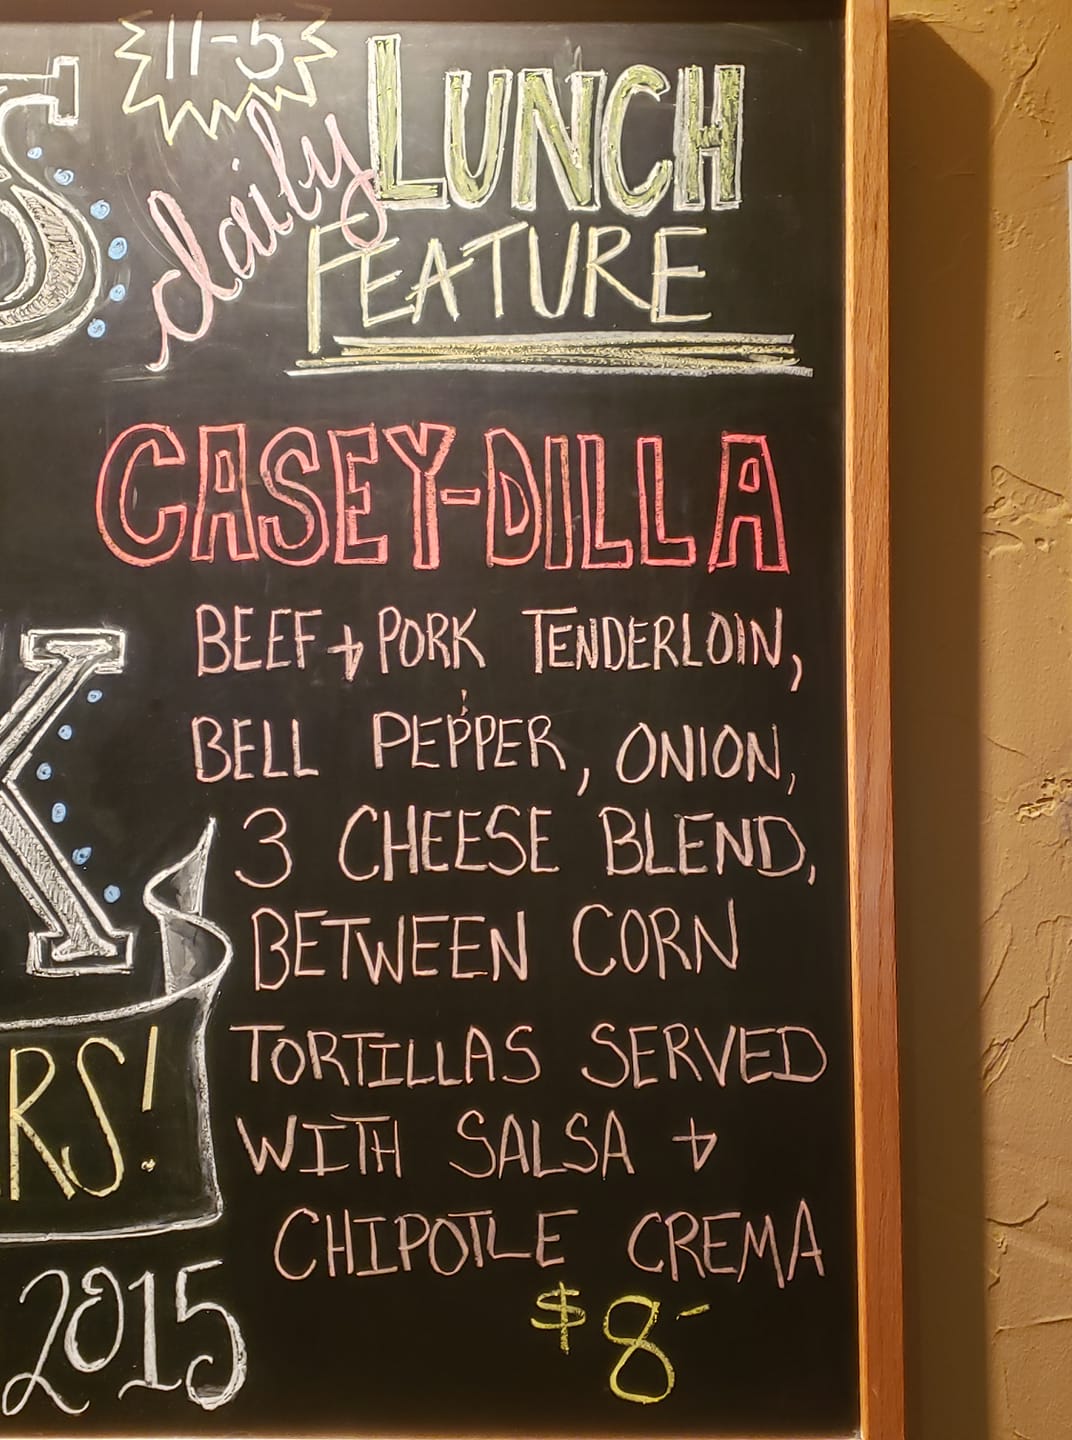 11-5
daily LUNCH
FEATURE
CASEY-DILLA
BEEF + PORK TENDERLOIN,
BELL PEPPER, ONION,
3 CHEESE BLEND,
BETWEEN CORN
TORTILLAS SERVED
WITH SALSA +
CHIPOTLE CREMA
$8-
S
K
RS!
2015